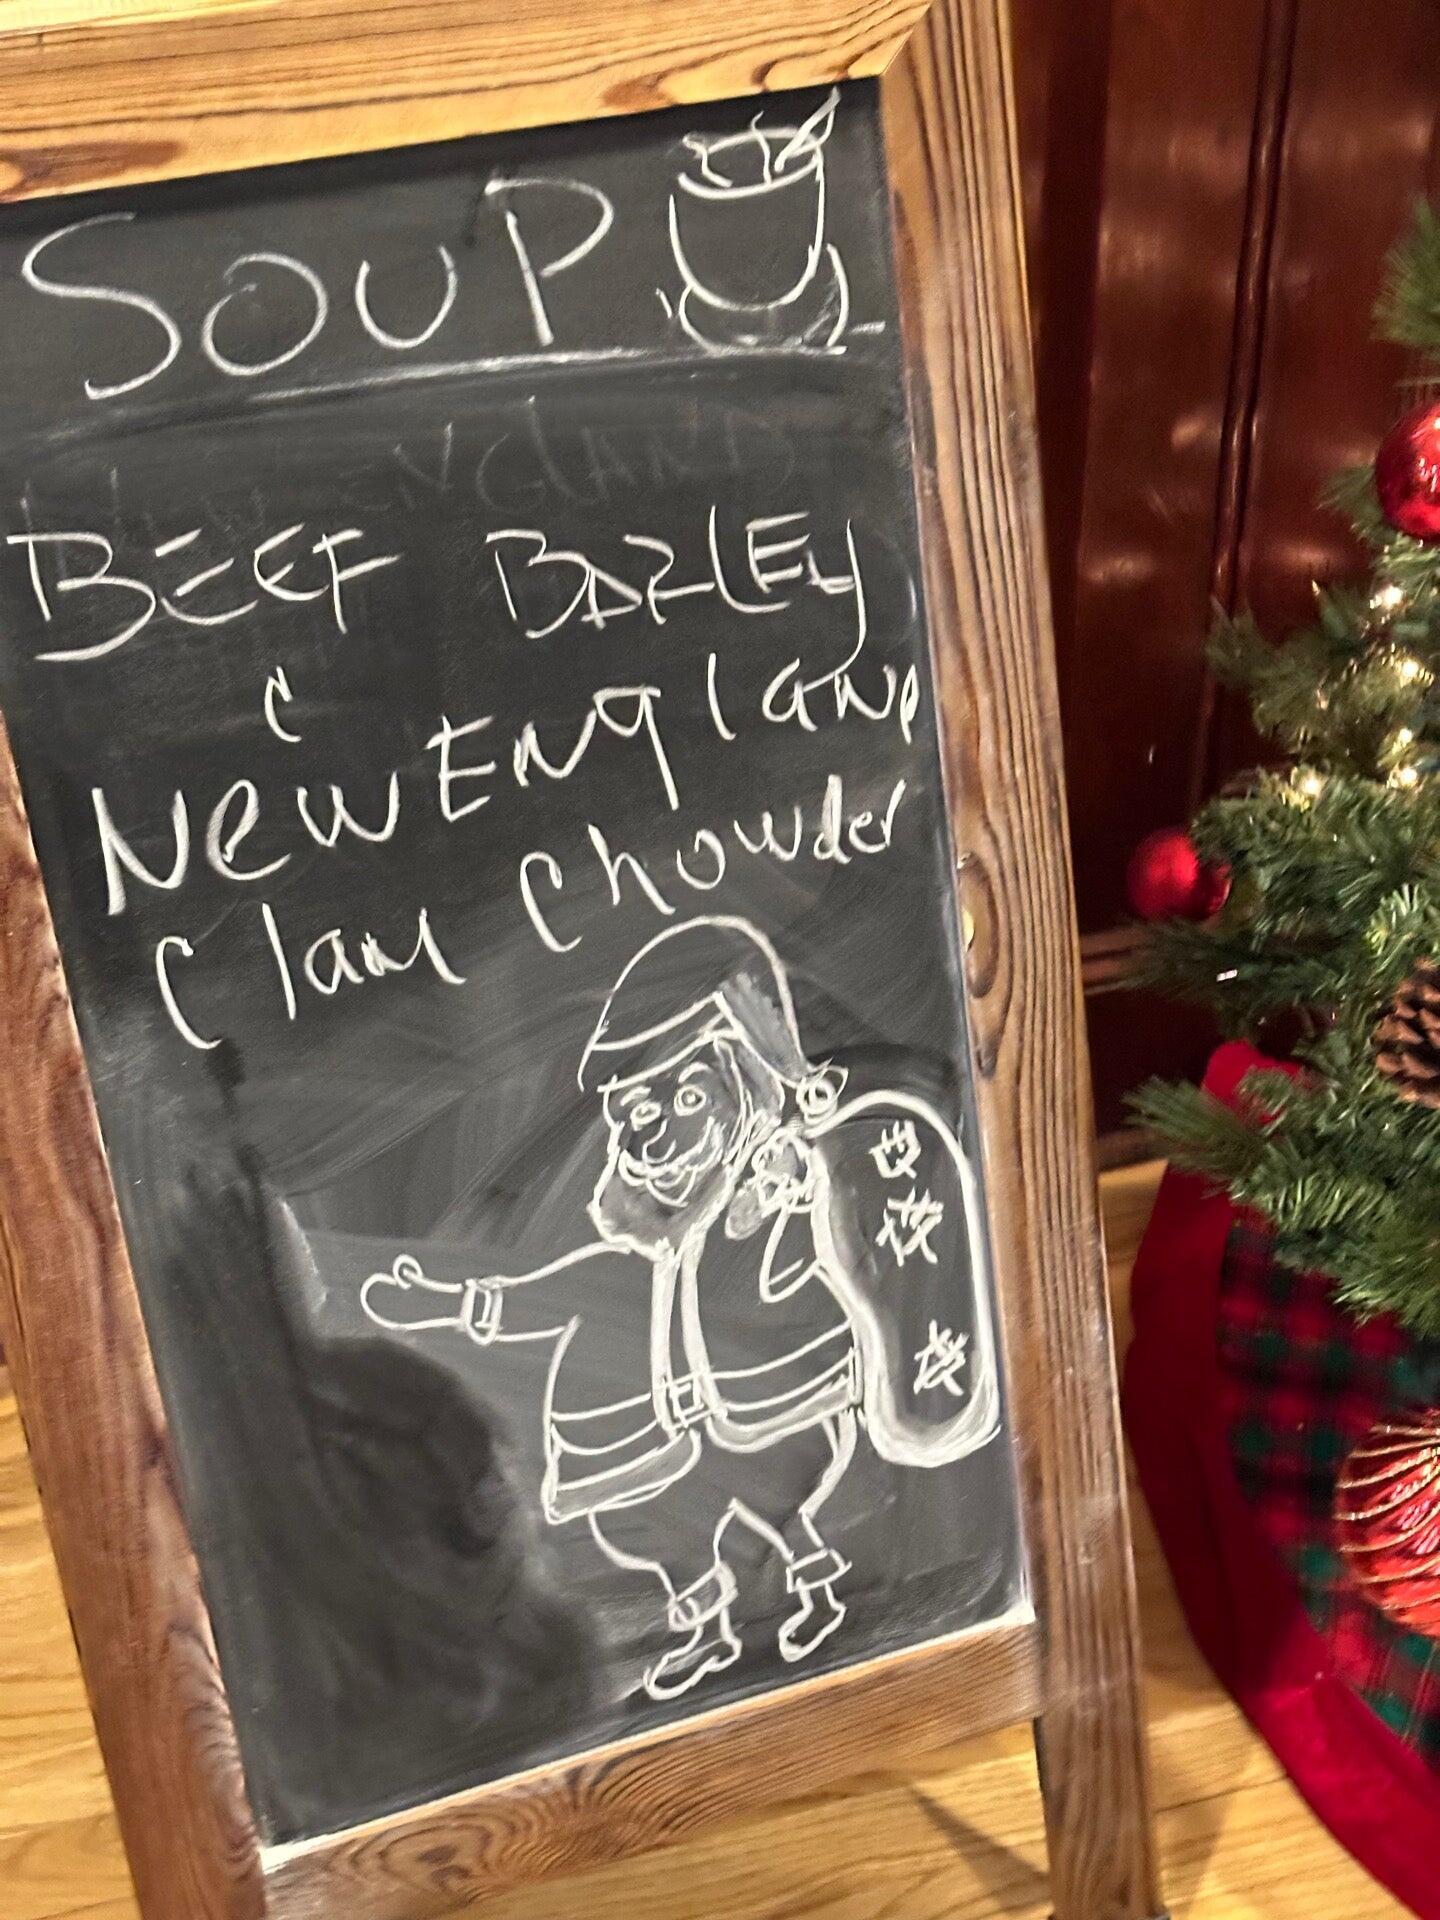 SOUP
BEEF BARLEY
New England
Clam Chowder